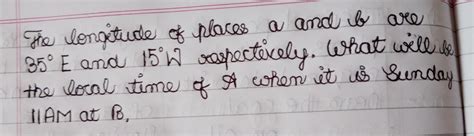 The longitude of places a and b are
35° E and 15° W respectively. What will be
the local time of A when it is Sunday
11AM at B.